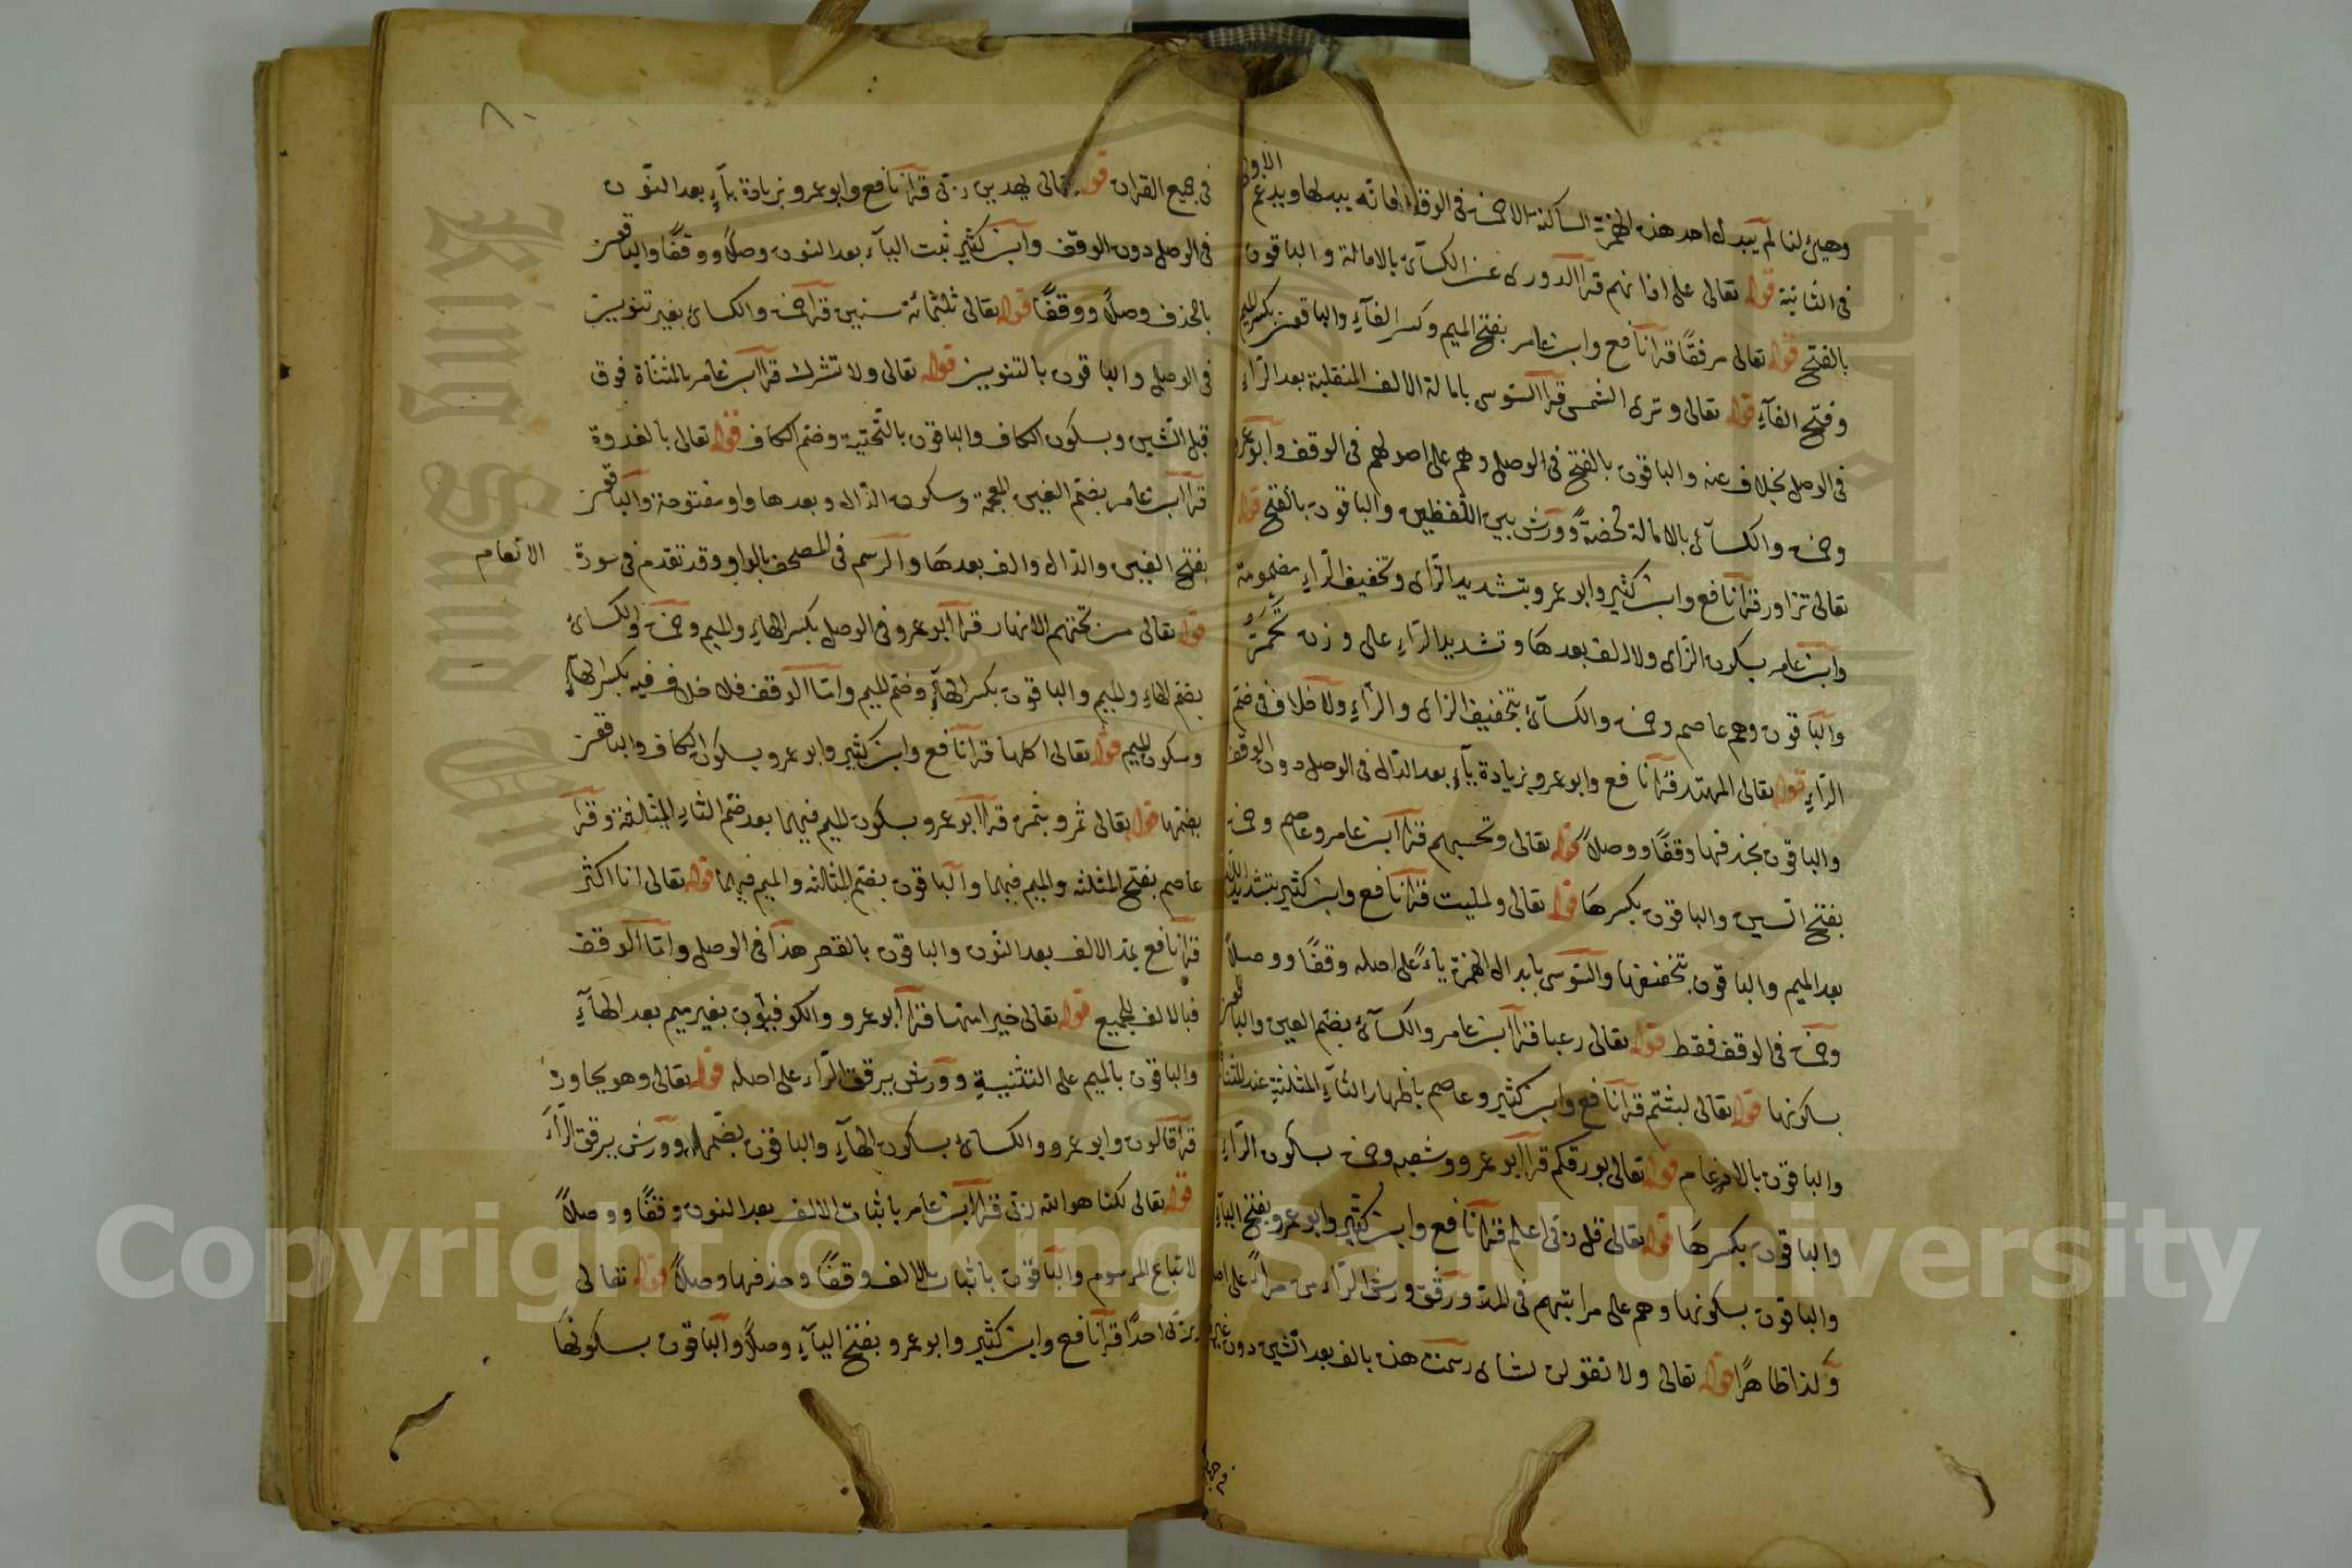 وهيئ لنا لم يبدل احد هذه الهمزة الساكنة الا حمزة في الوقف فانه يبدلها ويدغم الاولى
في الثانية قوله تعالى على اذانهم قرا الدورى عن الكسآئ بالامالة والباقون
بالفتح قوله تعالى مرفقًا قرا نافع وابن عامر بفتح الميم وكسر الفآءِ والباقون بكسر الميم
وفتح الفآءِ قوله تعالى وترى الشمس قرا السوسى بامالة الالف المنقلبة بعد الرّاءِ
فى الوصل بخلاف عنه والباقون بالفتح فى الوصل وهم على اصولهم فى الوقف وابو عمرو
وحمزة والكسآئ بالامالة محضةً وورش بين اللّفظين والباقون بالفتح قوله
تعالى تزاور قرا نافع وابن كثير وابو عمرو بتشديد الزاى وتخفيف الرّاءِ مضمومة
وابن عامر بسكون الزاى ولا الف بعدها وتشديد الرّاءِ على وزن تَحْمَرُّ
والباقون وهم عاصم وحمزة والكسآئ بتخفيف الزاى والرّاءِ ولا خلاف فى ضم
الرّاءِ قوله تعالى المهتد قرا نافع وابو عمرو بزيادة يآءٍ بعد الدّال فى الوصل دون الوقف
والباقون بحذفها وقفًا ووصلاً قوله تعالى وتحسبهم قرا ابن عامر وعاصم وحمزة
بفتح السين والباقون بكسرها قوله تعالى ولمليت قرا نافع وابن كثير بتشديد اللام
بعد الميم والباقون بتخفيفها والسّوسى بابدال الهمزة ياءً على اصله وقفًا ووصلاً
وحمزة فى الوقف فقط قوله تعالى رعبا قرا ابن عامر والكسآئ بضم العين والباقون
بسكونها قوله تعالى لبثتم قرا نافع وابن كثير وعاصم باظهار الثآءِ المثلثة عند المثناة
والباقون بالادغام قوله تعالى بورقكم قرا ابو عمرو وشعبه وحمزة بسكون الرّاءِ
والباقون بكسرها قوله تعالى قل ربّى اعلم قرا نافع وابن كثير وابو عمرو بفتح اليآءِ
والباقون بسكونها وهم على مراتبهم فى المد ورقق ورش الرّاء من مراءً على اصله
وكذا ظاهرًا قوله تعالى ولا تقولن لشاى رسمت هذه بالف بعد الشين دون غيرها
فى جميع القران قوله تعالى يهدين ربّى قرا نافع وابو عمرو بزيادة يآءٍ بعد النّون
فى الوصل دون الوقف وابن كثير ثبت اليآء بعد النون وصلاً ووقفًا والباقون
بالحذف وصلاً ووقفًا قوله تعالى ثلثمائة سنين قرا حمزة والكسائ بغير تنوين
فى الوصل والباقون بالتنوين قوله تعالى ولا تشرك قرا ابن عامر بالمثناة فوق
قبل الشين وبسكون الكاف والباقون بالتّحتية وضم الكاف قوله تعالى بالغدوة
قرا ابن عامر بضم الغين المعجمة وسكون الدّال وبعدها واو مفتوحة والباقون
بفتح الغين والدّال والف بعدها والرّسم فى المصحف بالواو وقد تقدم فى سورة الانعام
قوله تعالى من تحتهم الانهار قرا ابو عمرو فى الوصل بكسر الهاءِ والميم وحمزة والكسائ
بضم الهاءِ والميم والباقون بكسر الهآءِ وضم الميم وامّا الوقف فلا خلاف فيه بكسر الهآءِ
وسكون الميم قوله تعالى اكلها قرا نافع وابن كثير وابو عمرو بسكون الكاف والباقون
بضمها قوله تعالى ثمر وبثمره قرا ابو عمرو بسكون الميم فيهما بعد ضم الثاءِ المثلثة وقرا
عاصم بفتح المثلثه والميم فيهما والباقون بضم المثلثه والميم فيهما قوله تعالى انا اكثر
قرا نافع بمد الالف بعد النّون والباقون بالقصر هذا فى الوصل وامّا الوقف
فبالالف للجميع قوله تعالى خيرا منها قرا ابو عمرو والكوفيّون بغير ميم بعد الهآءِ
والباقون بالميم على التثنية وورش يرقق الرّاء على اصله قوله تعالى وهو يحاوره
قرا قالون وابو عمرو والكسائ بسكون الهآءِ والباقون بضمها وورش يرقق الرّآء
قوله تعالى لكنا هو الله ربّى قرا ابن عامر باثبات الالف بعد النون وقفًا ووصلاً
لاتباع المرسوم والباقون باثبات الالف وقفًا وحذفها وصلاً قوله تعالى
بربّى احدًا قرا نافع وابن كثير وابو عمرو بفتح اليآءِ وصلاً والباقون بسكونها
٨٠
King Saud University
Copyright © King Saud University